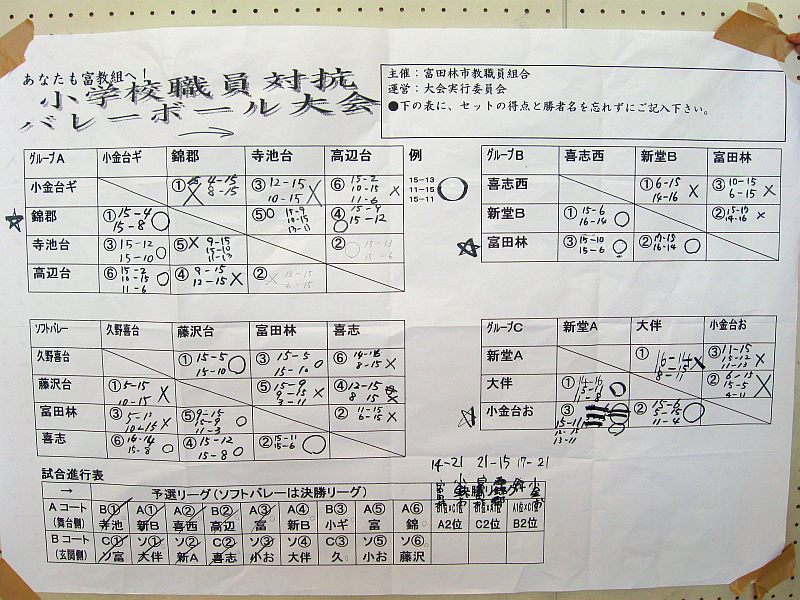 あなたも富教組へ!
小学校職員対抗
バレーボール大会
主催：富田林市教職員組合
運営：大会実行委員会
●下の表に、セットの得点と勝者名を忘れずにご記入下さい。
グループA 小金台ギ 錦郡 寺池台 高辺台
小金台ギ ① 8-15 ③ 12-15 10-15 ⑥ 15-2 10-15 11-6
錦郡 ① 15-4 15-8 ⑤ ④ 15-12
寺池台 ③ 15-12 15-10 ⑤ 9-15 ② 15-13 15-6
高辺台 ⑥ 15-2 11-6 ④ 9-15 12-15 ② 13-15 6-15
例
15-13
11-15
15-11
グループB 喜志西 新堂B 富田林
喜志西 ① 6-15 14-16 ③ 10-15 6-15
新堂B ① 15-6 16-14 ② 14-16
富田林 ③ 15-10 15-6 ② 16-14
ソフトバレー 久野喜台 藤沢台 富田林 喜志
久野喜台 ① 15-5 15-10 ③ 15-5 15-10 ⑥ 8-15
藤沢台 ① 5-15 10-15 ⑤ 15-9 9-15 3-11 ④ 12-15 8-15
富田林 ③ 5-15 10-15 ⑤ 9-15 15-9 11-3 ② 11-15 6-15
喜志 ⑥ 15-8 ④ 15-12 15-8 ② 15-11 15-6
グループC 新堂A 大伴 小金台お
新堂A ① 16-14 8-11 ③ 11-15 15-12 11-13
大伴 ① ② 6-15 15-5 4-11
小金台お ③ ② 15-6 5-15 11-4
試合進行表
14-21 21-15 17-21
→ 予選リーグ(ソフトバレーは決勝リーグ)
Aコート(舞台側) B① 寺池 A① 新B A② 喜西 B② 高辺 A③ 富 A④ 新B B③ 小ギ A⑤ 富 A⑥ 錦 A2位 C2位 B2位
Bコート(玄関側) C① ソ富 ソ① 大伴 ソ② 新A C② 喜志 ソ③ 小お ソ④ 大伴 C③ 久 ソ⑤ 小お ソ⑥ 藤沢